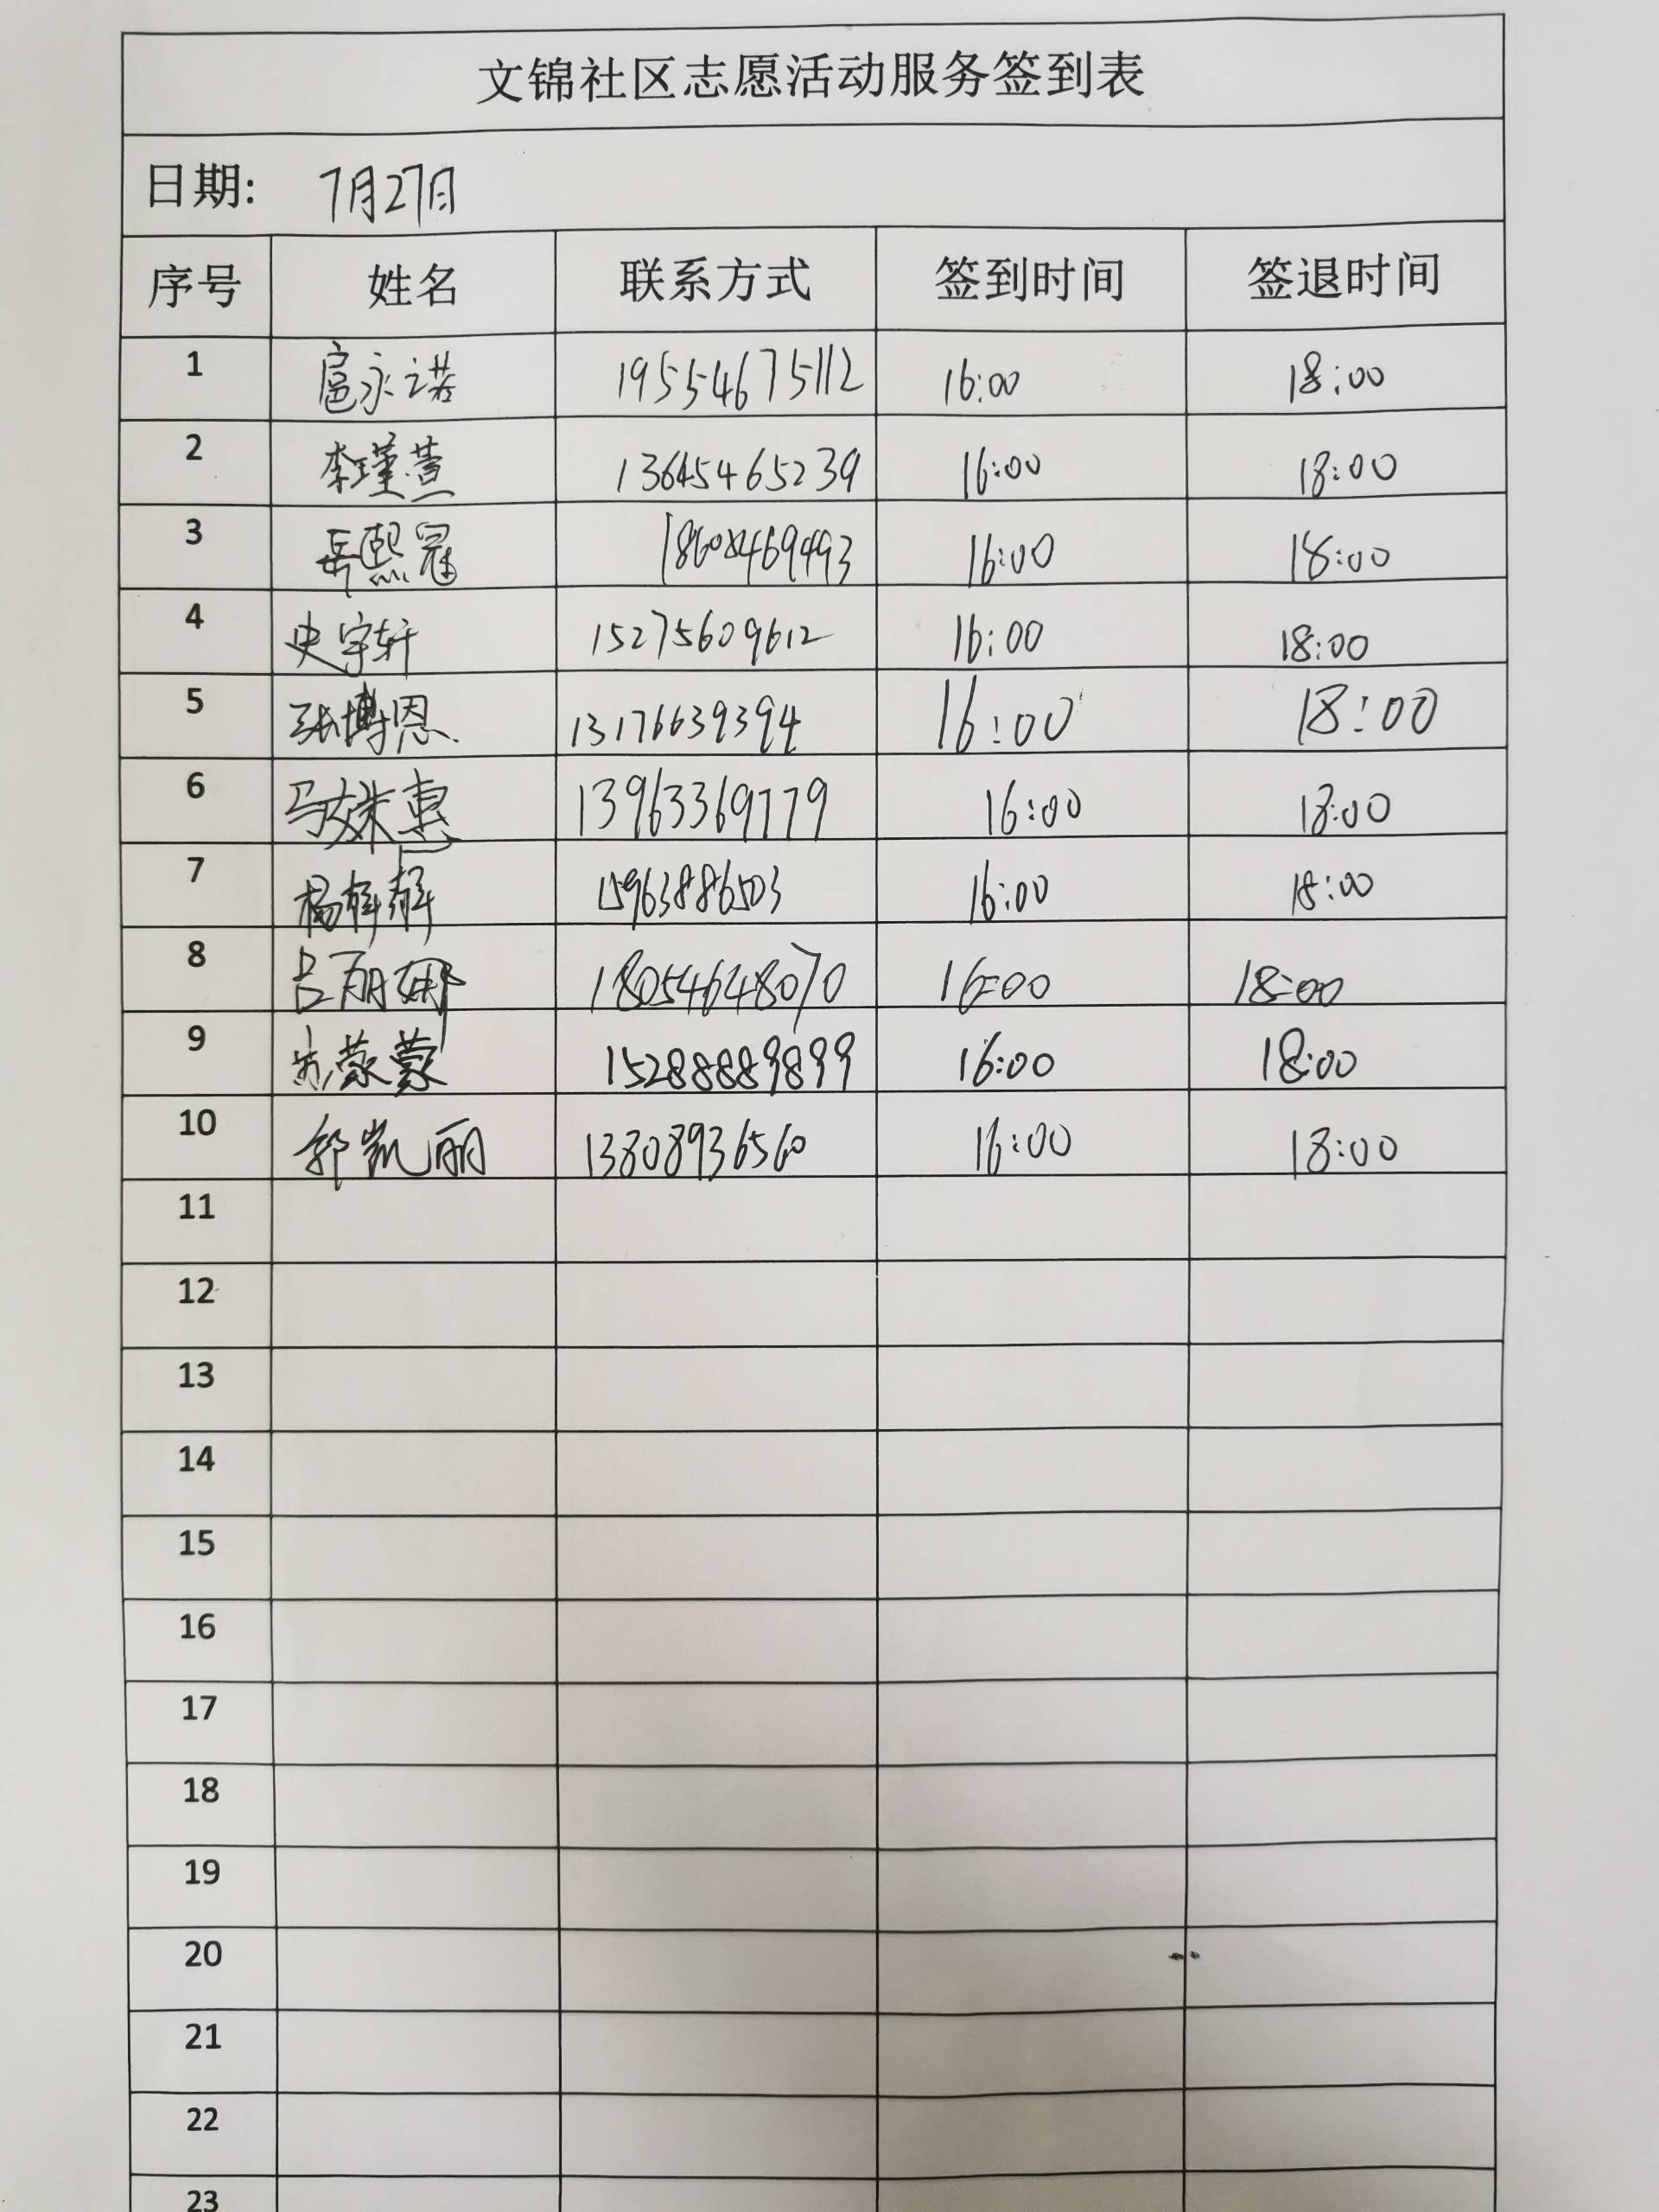 文锦社区志愿活动服务签到表
日期: 7月27日
序号 姓名 联系方式 签到时间 签退时间
1 扈永诺 19554675112 16:00 18:00
2 李瑾萱 13645465239 16:00 18:00
3 岳熙冠 18608469493 16:00 18:00
4 史宇轩 15275609612 16:00 18:00
5 张博恩 13176639394 16:00 18:00
6 马姝惠 13963369779 16:00 18:00
7 杨静静 15963886503 16:00 18:00
8 吕丽娜 18054648070 16:00 18:00
9 蒙蒙 15288889899 16:00 18:00
10 郭凯丽 13808936560 16:00 18:00
11
12
13
14
15
16
17
18
19
20
21
22
23